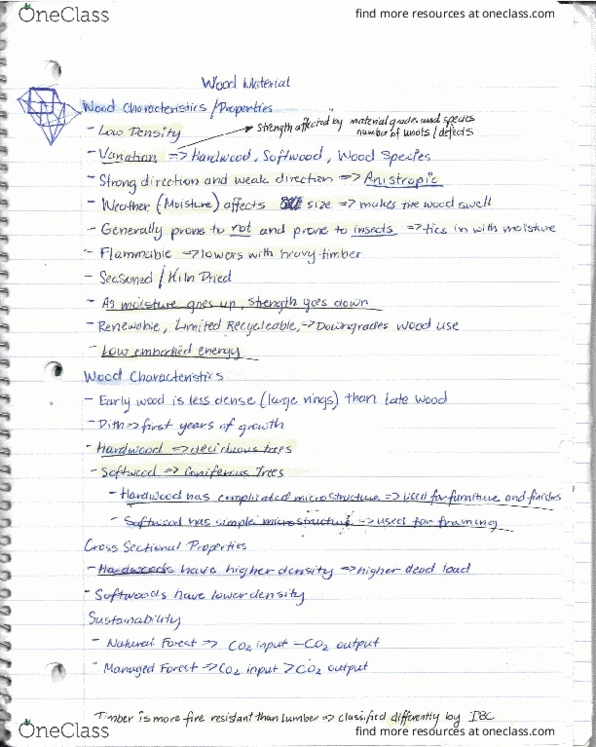 OneClass
find more resources at oneclass.com
Wood Material
Wood Characteristics / Properties
- Low Density
→ Strength affected by material grade and species
number of knots / defects
- Variation => Hardwood, Softwood, Wood Species
- Strong direction and weak direction => Anistropic
- Weather (Moisture) affects size => makes the wood swell
- Generally prone to rot and prone to insects => ties in with moisture
- Flammable => lowers with heavy timber
- Seasoned / Kiln Dried
- As moisture goes up, strength goes down
- Renewable, Limited Recycleable, -> Downgrades wood use
- Low embodied energy
Wood Characteristics
- Early wood is less dense (large rings) than late wood
- Pith => first years of growth
- Hardwood => deciduous trees
- Softwood => Coniferous Trees
- Hardwood has complicated microstructure => used for furniture and finishes
- Softwood has simple microstructure -> used for framing
Cross Sectional Properties
- Hardwoods have higher density => higher dead load
- Softwoods have lower density
Sustainability
- Natural Forest => CO2 input = CO2 output
- Managed Forest => CO2 input > CO2 output
Timber is more fire resistant than lumber => classified differently by IBC
OneClass
find more resources at oneclass.com